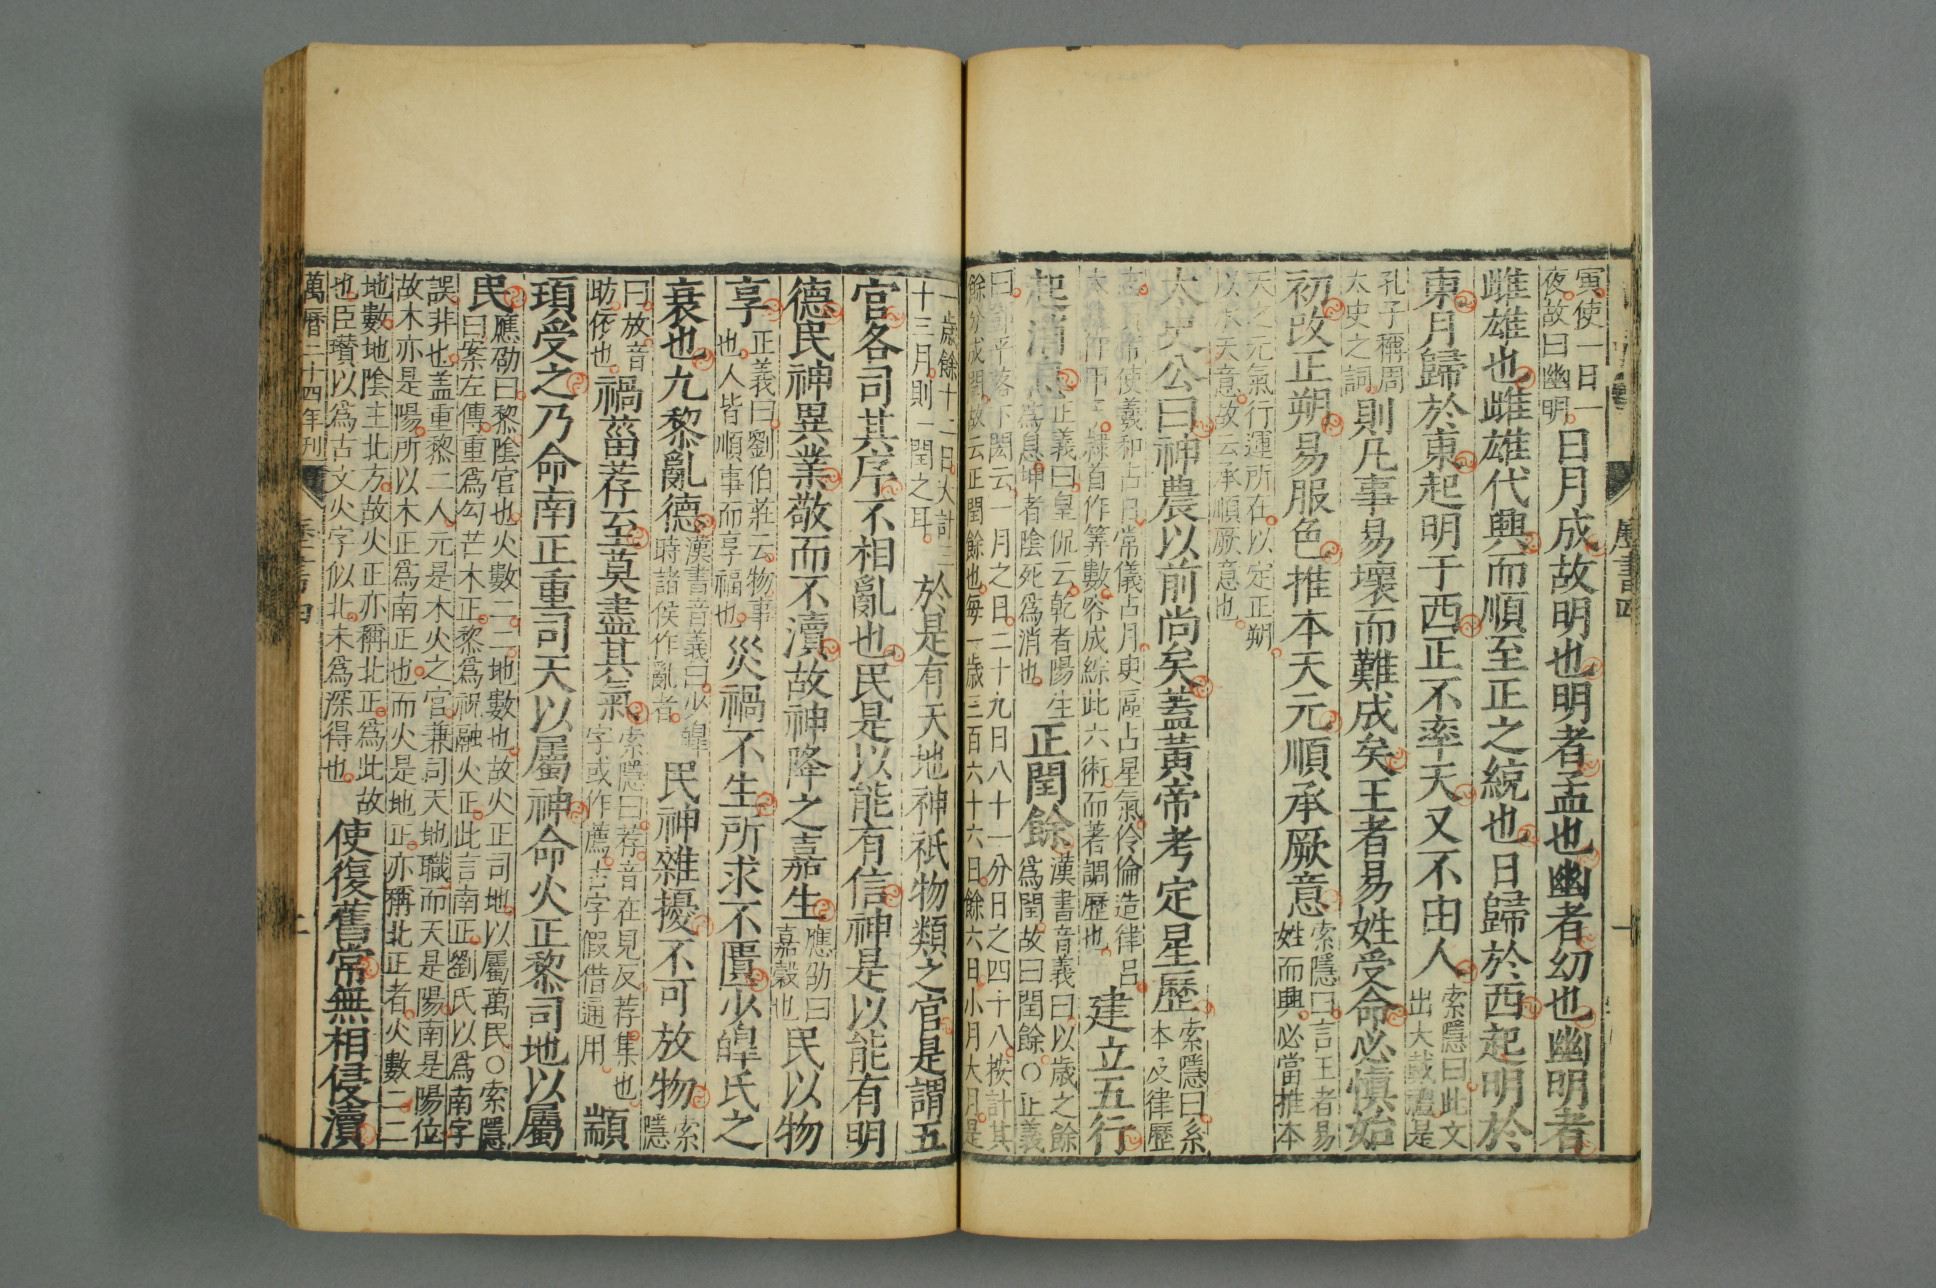 曆書四
冥使一日一
夜故曰幽明
日月成故明也明者孟也幽者幼也幽明者
雌雄也雌雄代興而順至正之統也日歸於西起明於
東月歸於東起明于西正不率天又不由人
索隱曰此文
出大戴禮是
孔子稱周
太史之詞
則凡事易壞而難成矣王者易姓受命必慎始
初改正朔易服色推本天元順承厥意
索隱曰言王者易
姓而興必當推本
天之元氣行運所在以定正朔
以承天意故云承順厥意也
太史公曰神農以前尚矣蓋黃帝考定星歷
索隱曰系
本及律歷
志黃帝使羲和占日常儀占月臾區占星氣伶倫造律呂
大撓作甲子隸首作筭數容成綜此六術而著調歷也
建立五行
起消息
正義曰皇侃云乾者陽生
爲息坤者陰死爲消也
正閏餘
漢書音義曰以歲之餘
爲閏故曰閏餘○正義
曰鄧平落下閎云一月之日二十九日八十一分日之四十八按計其
餘分成閏故云正閏餘也每一歲三百六十六日餘六日小月大月是
一歲餘十二日大計三
十三月則一閏之耳
於是有天地神祇物類之官是謂五
官各司其序不相亂也民是以能有信神是以能有明
德民神異業敬而不瀆故神降之嘉生
應劭曰
嘉穀也
民以物
享
正義曰劉伯莊云物事
也人皆順事而享福也
災禍不生所求不匱少皞氏之
衰也九黎亂德
漢書音義曰少皞
時諸侯作亂者
民神雜擾不可放物
索
隱
曰放音
昉依也
禍菑荐至莫盡其氣
索隱曰荐音在見反荐集也
字或作薦古字假借通用
顓
頊受之乃命南正重司天以屬神命火正黎司地以屬
民
應劭曰黎陰官也火數二二地數也故火正司地以屬萬民○索隱
曰案左傳重爲勾芒木正黎爲祝融火正此言南正劉氏以爲南字
誤非也盖重黎二人元是木火之官兼司天地職而天是陽南是陽位
故木亦是陽所以木正爲南正也而火是地正亦稱北正者火數二二
地數地陰主北方故火正亦稱北正爲此故
也臣瓚以爲古文火字似北未爲深得也
使復舊常無相侵瀆
萬曆二十四年刊
卷二十四
二